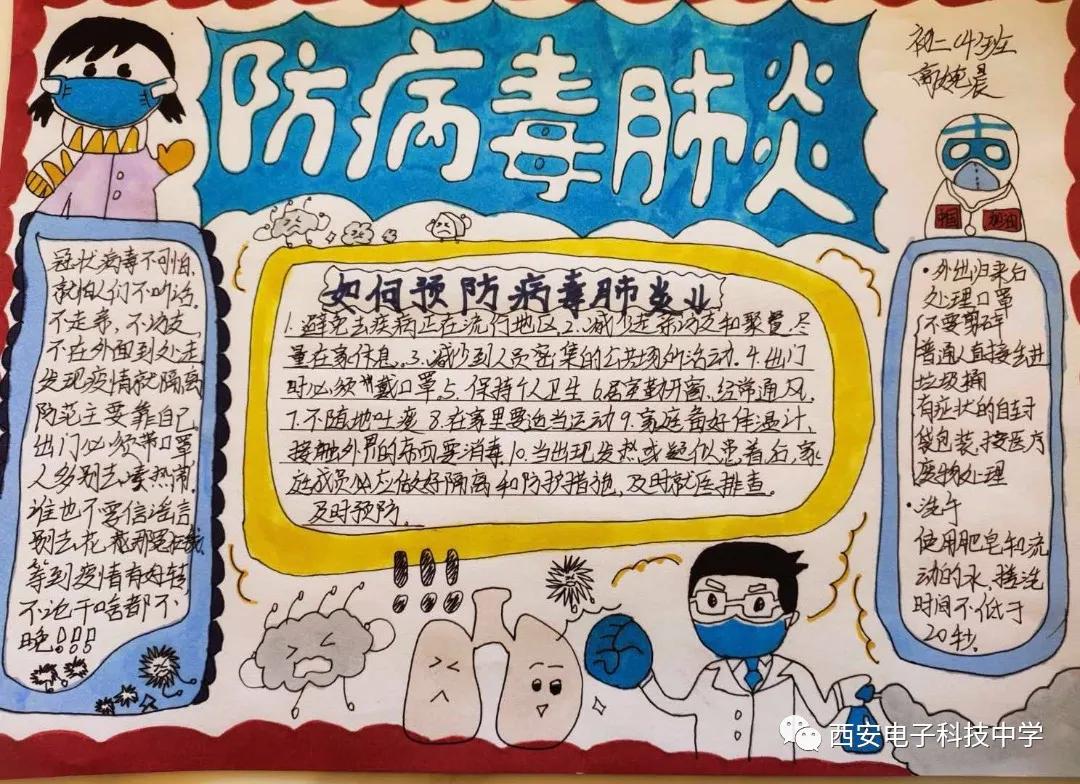 防病毒肺炎
初二
冠状病毒不可怕,
就怕人们不听话.
不走亲,不访友
不在外面到处走
发现疫情就隔离
防范主要靠自己
出门必须带口罩
人多别去凑热闹
谁也不要信谣言
别去
等到疫情有好转
不论干啥都不
晚!!!
如何预防病毒肺炎
1.避免去疾病正在流行地区.2.减少走亲访友和聚餐.尽
量在家休息.3.减少到人员密集的公共场所活动.4.出门
时必须戴口罩.5.保持个人卫生 6.居室勤开窗、经常通风
7.不随地吐痰 8.在家里要适当运动 9.家庭备好体温计、
接触外界的布面要消毒.10.当出现发热或疑似患者后,家
庭成员 应做好隔离和防护措施,及时就医排查.
及时预防.
!!!
中国 加油
·外出归来后
处理口罩
不要剪碎
普通人直接丢进
垃圾桶
有症状的自封
袋包装.按医疗
废物处理
·洗手
使用肥皂和流
动的水、搓洗
时间不低于
20秒.
西安电子科技中学